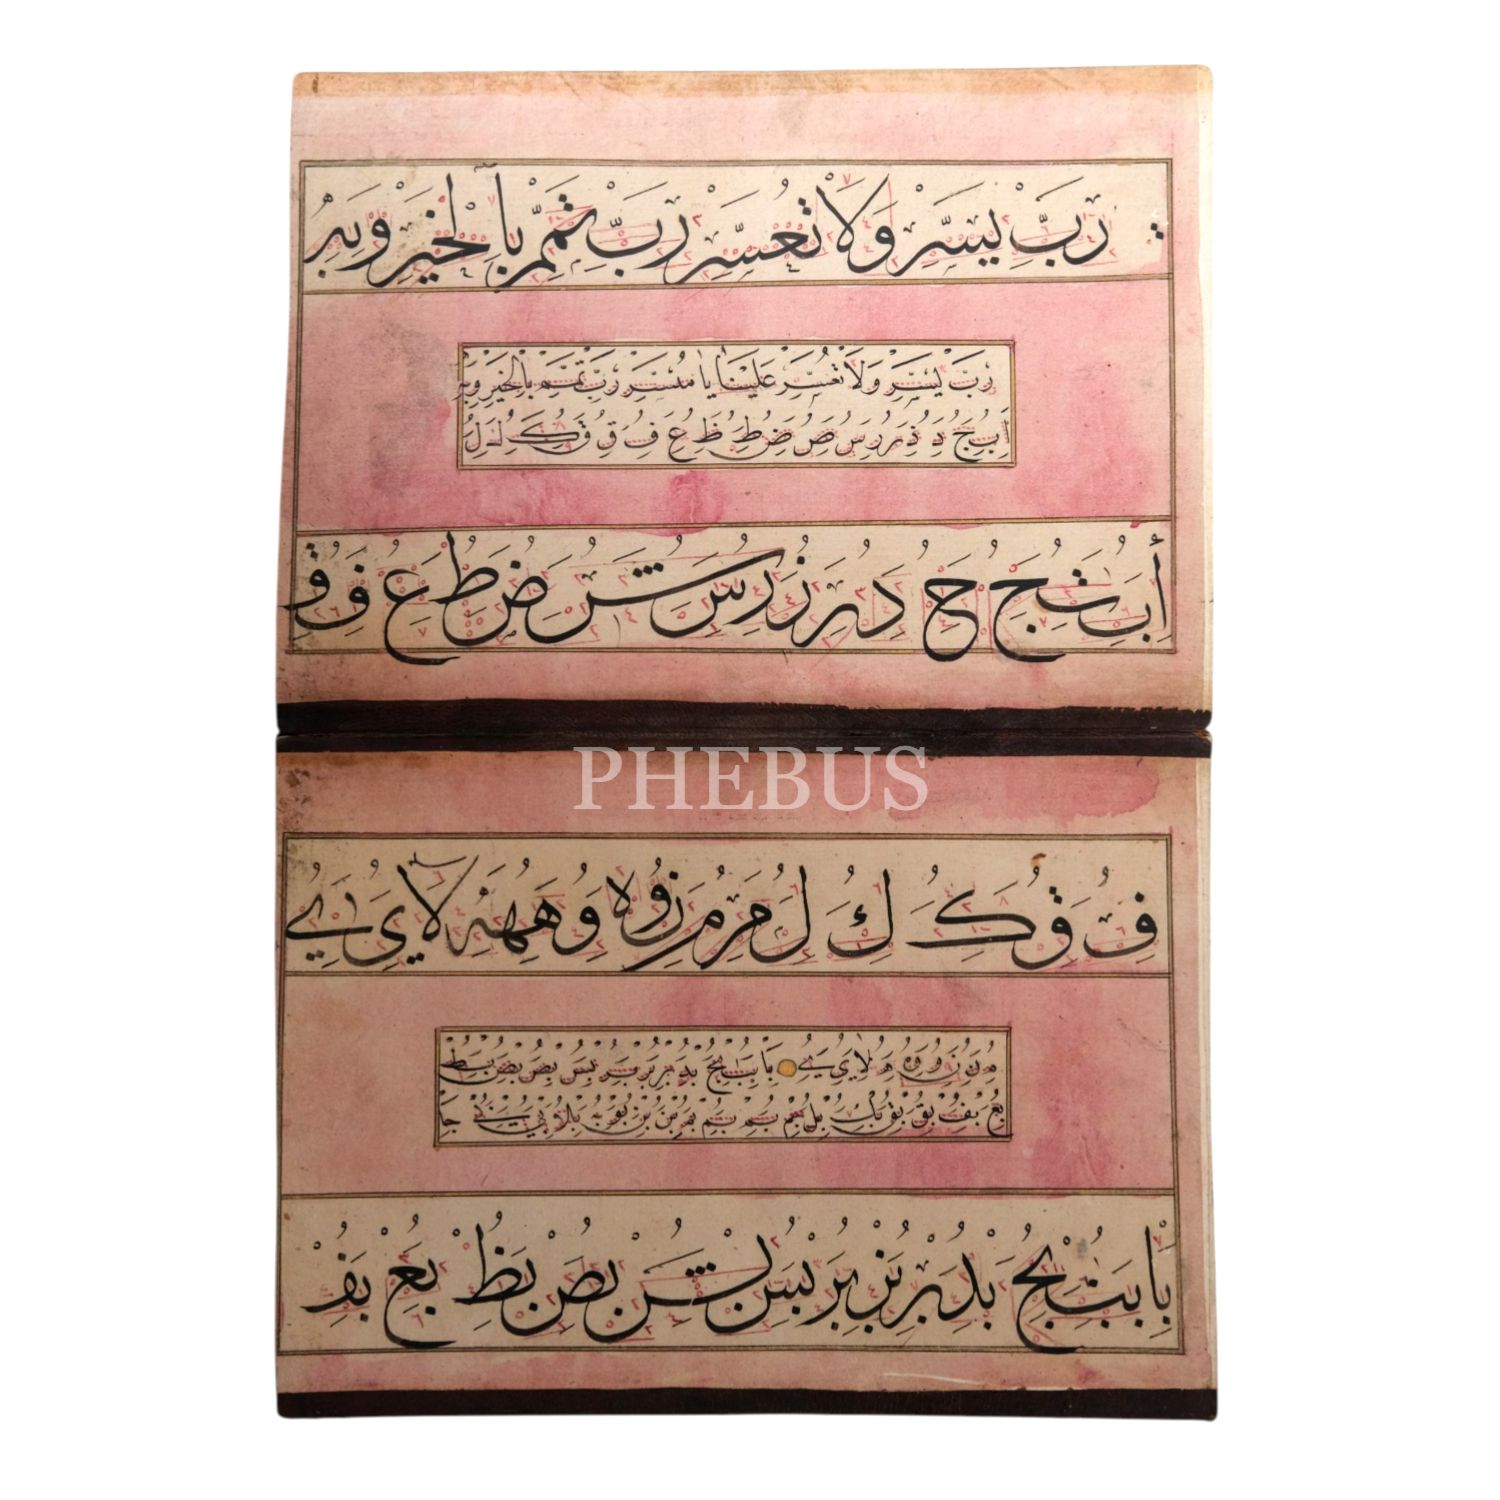 رَبِّ يَسِّرْ وَلَا تُعَسِّرْ رَبِّ تَمِّمْ بِالْخَيْرِ وَبِهِ
رَبِّ يَسِّرْ وَلَا تُعَسِّرْ عَلَيْنَا يَا مُيَسِّرُ رَبِّ تَمِّمْ بِالْخَيْرِ وَبِهِ
ا ب ج د ذ ر ر س ص ض ط ظ ع ف ق ق ك ل ل
ا ب ث ج ح د ر ز ر س ش ض ط ع ف ق
PHEBUS
ف ق ك ك ل م م ن و ه و ه ه لا ي ي
لا ي ي با بب بج بد بر بر بس بص بض بط
بع بف بق بق بك بل بم بم بم بن بن بو به بلا بي ج
با بب بج بد بر بز بر بس بش بص بظ بع بف